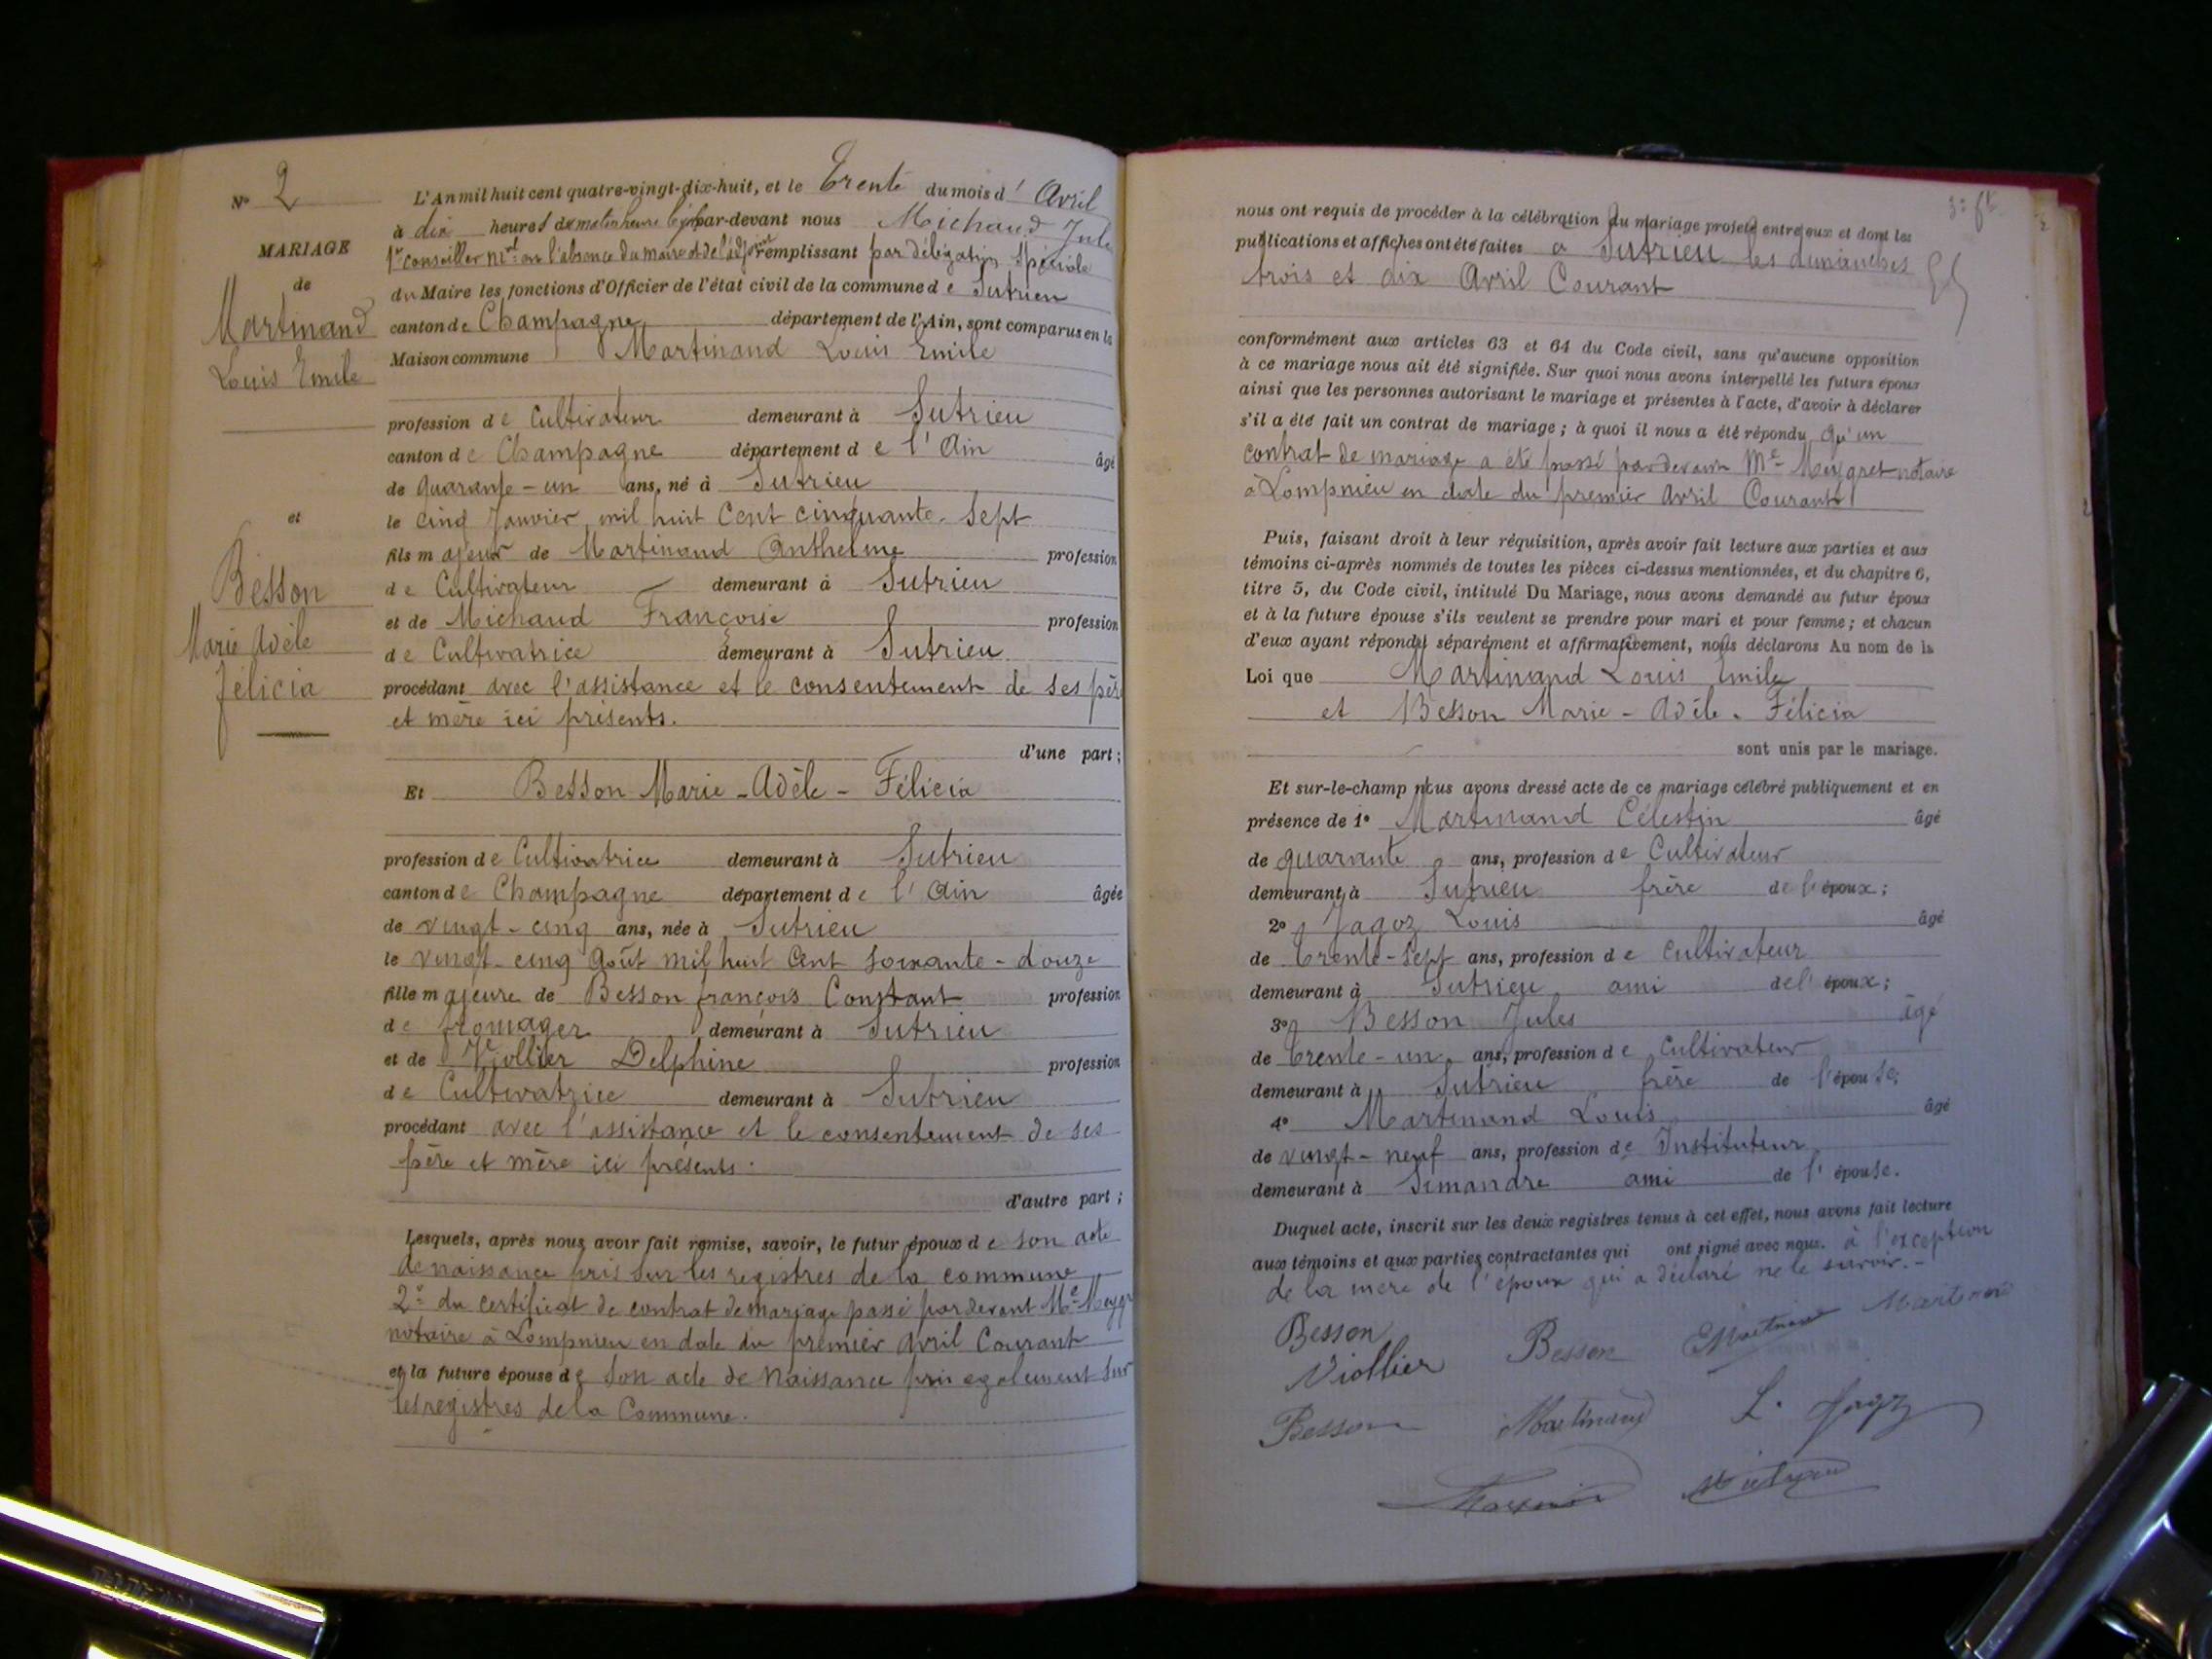 N° 2
MARIAGE
de
Martinand
Louis Emile
et
Besson
Marie Adèle
Félicia
L'An mil huit cent quatre-vingt-dix-huit, et le Trente du mois d' Avril
à dix heures du matin heure légale par-devant nous Michaud Jules
1er conseiller mal en l'absence du maire et de l'adjoint remplissant par délégation Spéciale
du Maire les fonctions d'Officier de l'état civil de la commune de Sutrieu
canton de Champagne département de l'Ain, sont comparus en la
Maison commune Martinand Louis Emile
profession de Cultivateur demeurant à Sutrieu
canton de Champagne département de l'Ain âgé
de quarante-un ans, né à Sutrieu
le cinq Janvier mil huit Cent cinquante-Sept
fils majeur de Martinand Anthelme profession
de Cultivateur demeurant à Sutrieu
et de Michaud Françoise profession
de Cultivatrice demeurant à Sutrieu
procédant avec l'assistance et le consentement de ses père
et mère ici présents.
d'une part;
Et Besson Marie-Adèle-Félicia
profession de Cultivatrice demeurant à Sutrieu
canton de Champagne département de l'Ain âgée
de vingt-cinq ans, née à Sutrieu
le vingt-cinq Août mil huit Cent soixante-douze
fille majeure de Besson françois Constant profession
de fromager demeurant à Sutrieu
et de Viollier Delphine profession
de Cultivatrice demeurant à Sutrieu
procédant avec l'assistance et le consentement de ses
père et mère ici présents.
d'autre part;
Lesquels, après nous avoir fait remise, savoir, le futur époux de son acte
de naissance pris sur les registres de la commune
2° du certificat de contrat de mariage passé pardevant Me
notaire à Lompnieu en date du premier Avril Courant
et la future épouse de Son acte de Naissance pris également sur
les registres de la Commune.
nous ont requis de procéder à la célébration du mariage projeté entre eux et dont les
publications et affiches ont été faites à Sutrieu les dimanches
trois et dix Avril Courant
conformément aux articles 63 et 64 du Code civil, sans qu'aucune opposition
à ce mariage nous ait été signifiée. Sur quoi nous avons interpellé les futurs époux
ainsi que les personnes autorisant le mariage et présentes à l'acte, d'avoir à déclarer
s'il a été fait un contrat de mariage; à quoi il nous a été répondu qu'un
contrat de mariage a été passé pardevant Me notaire
à Lompnieu en date du premier Avril Courant
Puis, faisant droit à leur réquisition, après avoir fait lecture aux parties et aux
témoins ci-après nommés de toutes les pièces ci-dessus mentionnées, et du chapitre 6,
titre 5, du Code civil, intitulé Du Mariage, nous avons demandé au futur époux
et à la future épouse s'ils veulent se prendre pour mari et pour femme; et chacun
d'eux ayant répondu séparément et affirmativement, nous déclarons Au nom de la
Loi que Martinand Louis Emile
et Besson Marie-Adèle-Félicia
sont unis par le mariage.
Et sur-le-champ nous avons dressé acte de ce mariage célébré publiquement et en
présence de 1° Martinand Célestin âgé
de quarante ans, profession de Cultivateur
demeurant à Sutrieu frère de l'époux;
2° Jagoz Louis âgé
de trente-sept ans, profession de cultivateur
demeurant à Sutrieu ami de l'époux;
3° Besson Jules âgé
de trente-un ans, profession de Cultivateur
demeurant à Sutrieu frère de l'épouse;
4° Martinand Louis âgé
de vingt-neuf ans, profession de Instituteur
demeurant à Simandre ami de l'épouse.
Duquel acte, inscrit sur les deux registres tenus à cet effet, nous avons fait lecture
aux témoins et aux parties contractantes qui ont signé avec nous. à l'exception
de la mère de l'époux qui a déclaré ne le savoir.
Besson Besson EMartinand Martinand
Viollier
Besson Martinand L. Jagoz